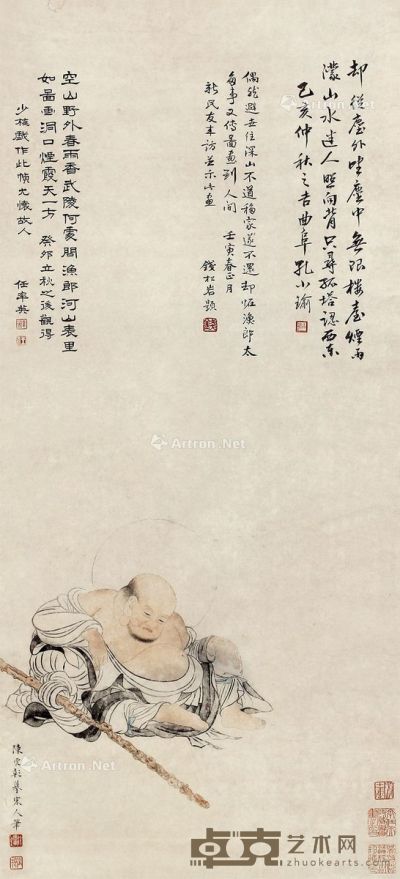 却從塵外望塵中無限樓臺煙雨
濛山水迷人照向背只尋孤塔認西東
乙亥仲秋之吉曲阜孔小瑜
偶然避世住深山不道移家遂不還却恠漁郎太
多事又傳圖畫到人間 壬寅春正月
新民友來訪並示此畫 錢松岩題
空山野外春雨香武陵何處問漁郎河山表里
如畵雲洞口煙霞天一方 癸卯立秋之後觀得
少梅戲作此幀尤懷故人 任率英
陳雲彰摹宋人筆
Artron.Net
Artron.Net
Artron.Net
Artron.Net
卓克艺术网
zhuokearts.com